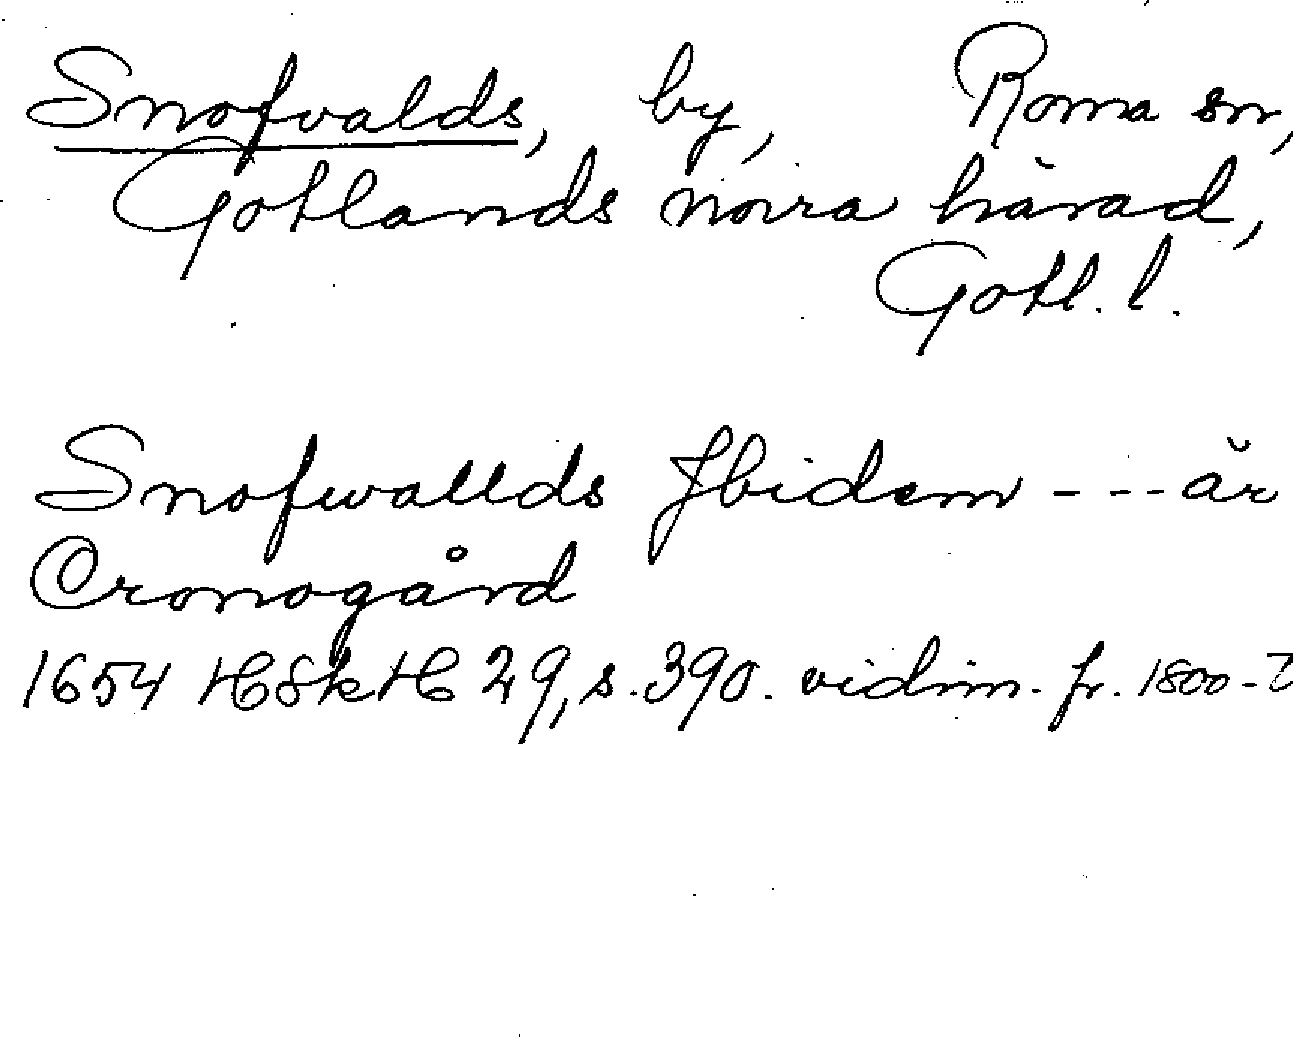 Snofvalds, by, Roma sn,
Gotlands norra härad,
Gotl. l.
Snofwallds Jbidem --- är
Cronogård
1654 s. 390. vidim. fr. 1800-